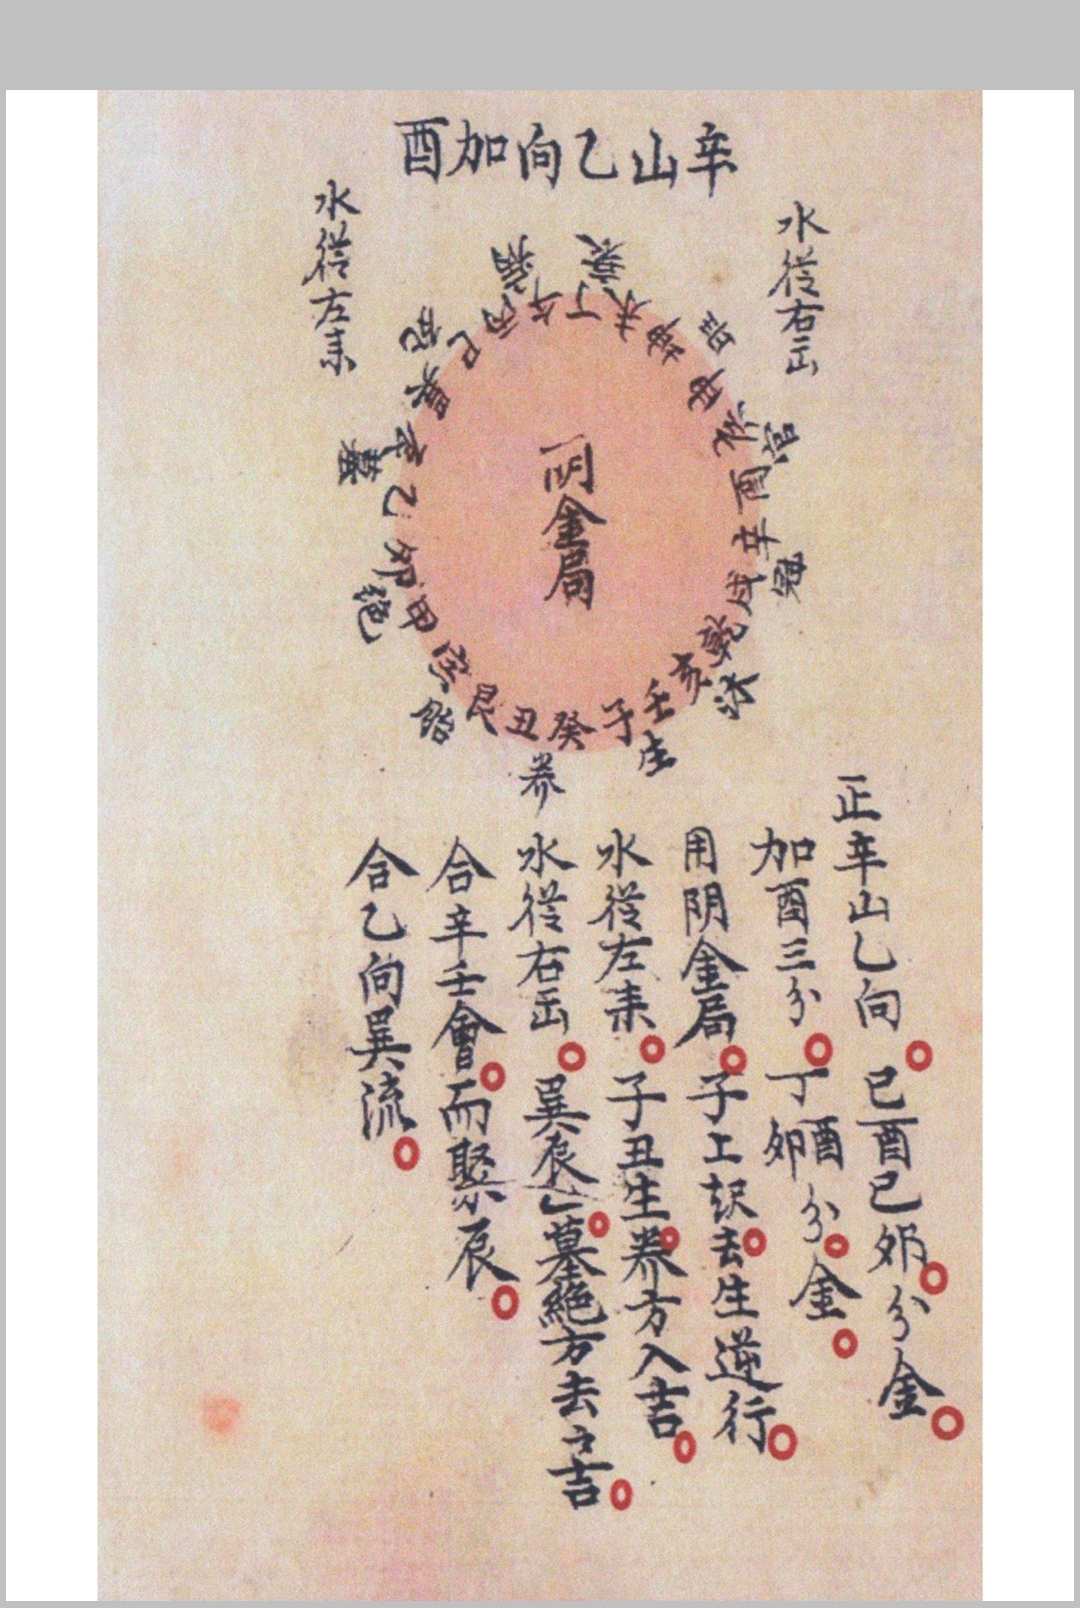 辛山乙向加酉
水從右出
水從左耒
阴金局
壬
子
癸
丑
艮
寅
甲
卯
乙
辰
巽
巳
丙
午
丁
未
坤
申
酉
辛
戌
乾
亥
生
养
胎
絕
墓
死
病
衰
旺
官
沐
正辛山乙向 己酉己卯分金
加酉三分 丁酉卯分金
用阴金局 子上起去生逆行
水從左耒 子丑生养方入吉
水從右出 巽辰乙墓絕方去之吉
合辛壬會而聚辰
合乙向巽流